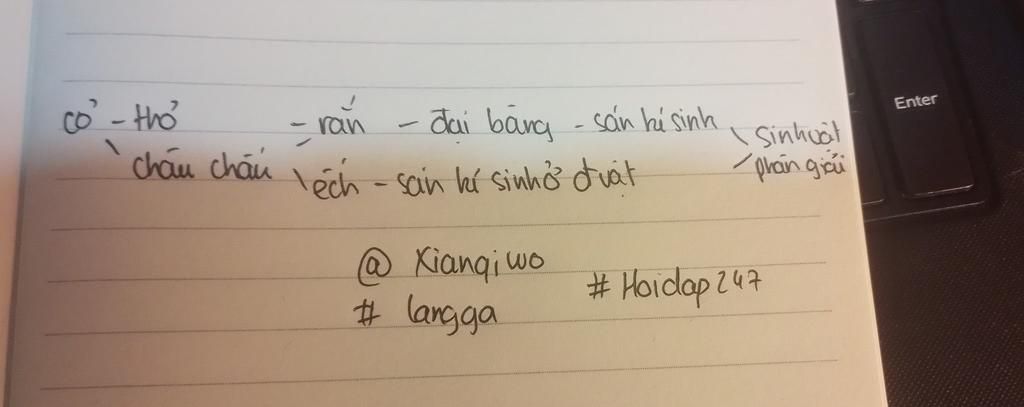 cỏ - thỏ - rắn - đại bàng - sán kí sinh \ sinh vật
\ châu chấu / \ ếch - sán kí sinh ở đ vật / phân giải
@ Xianqiwo
# Hoidap247
# langga
Enter